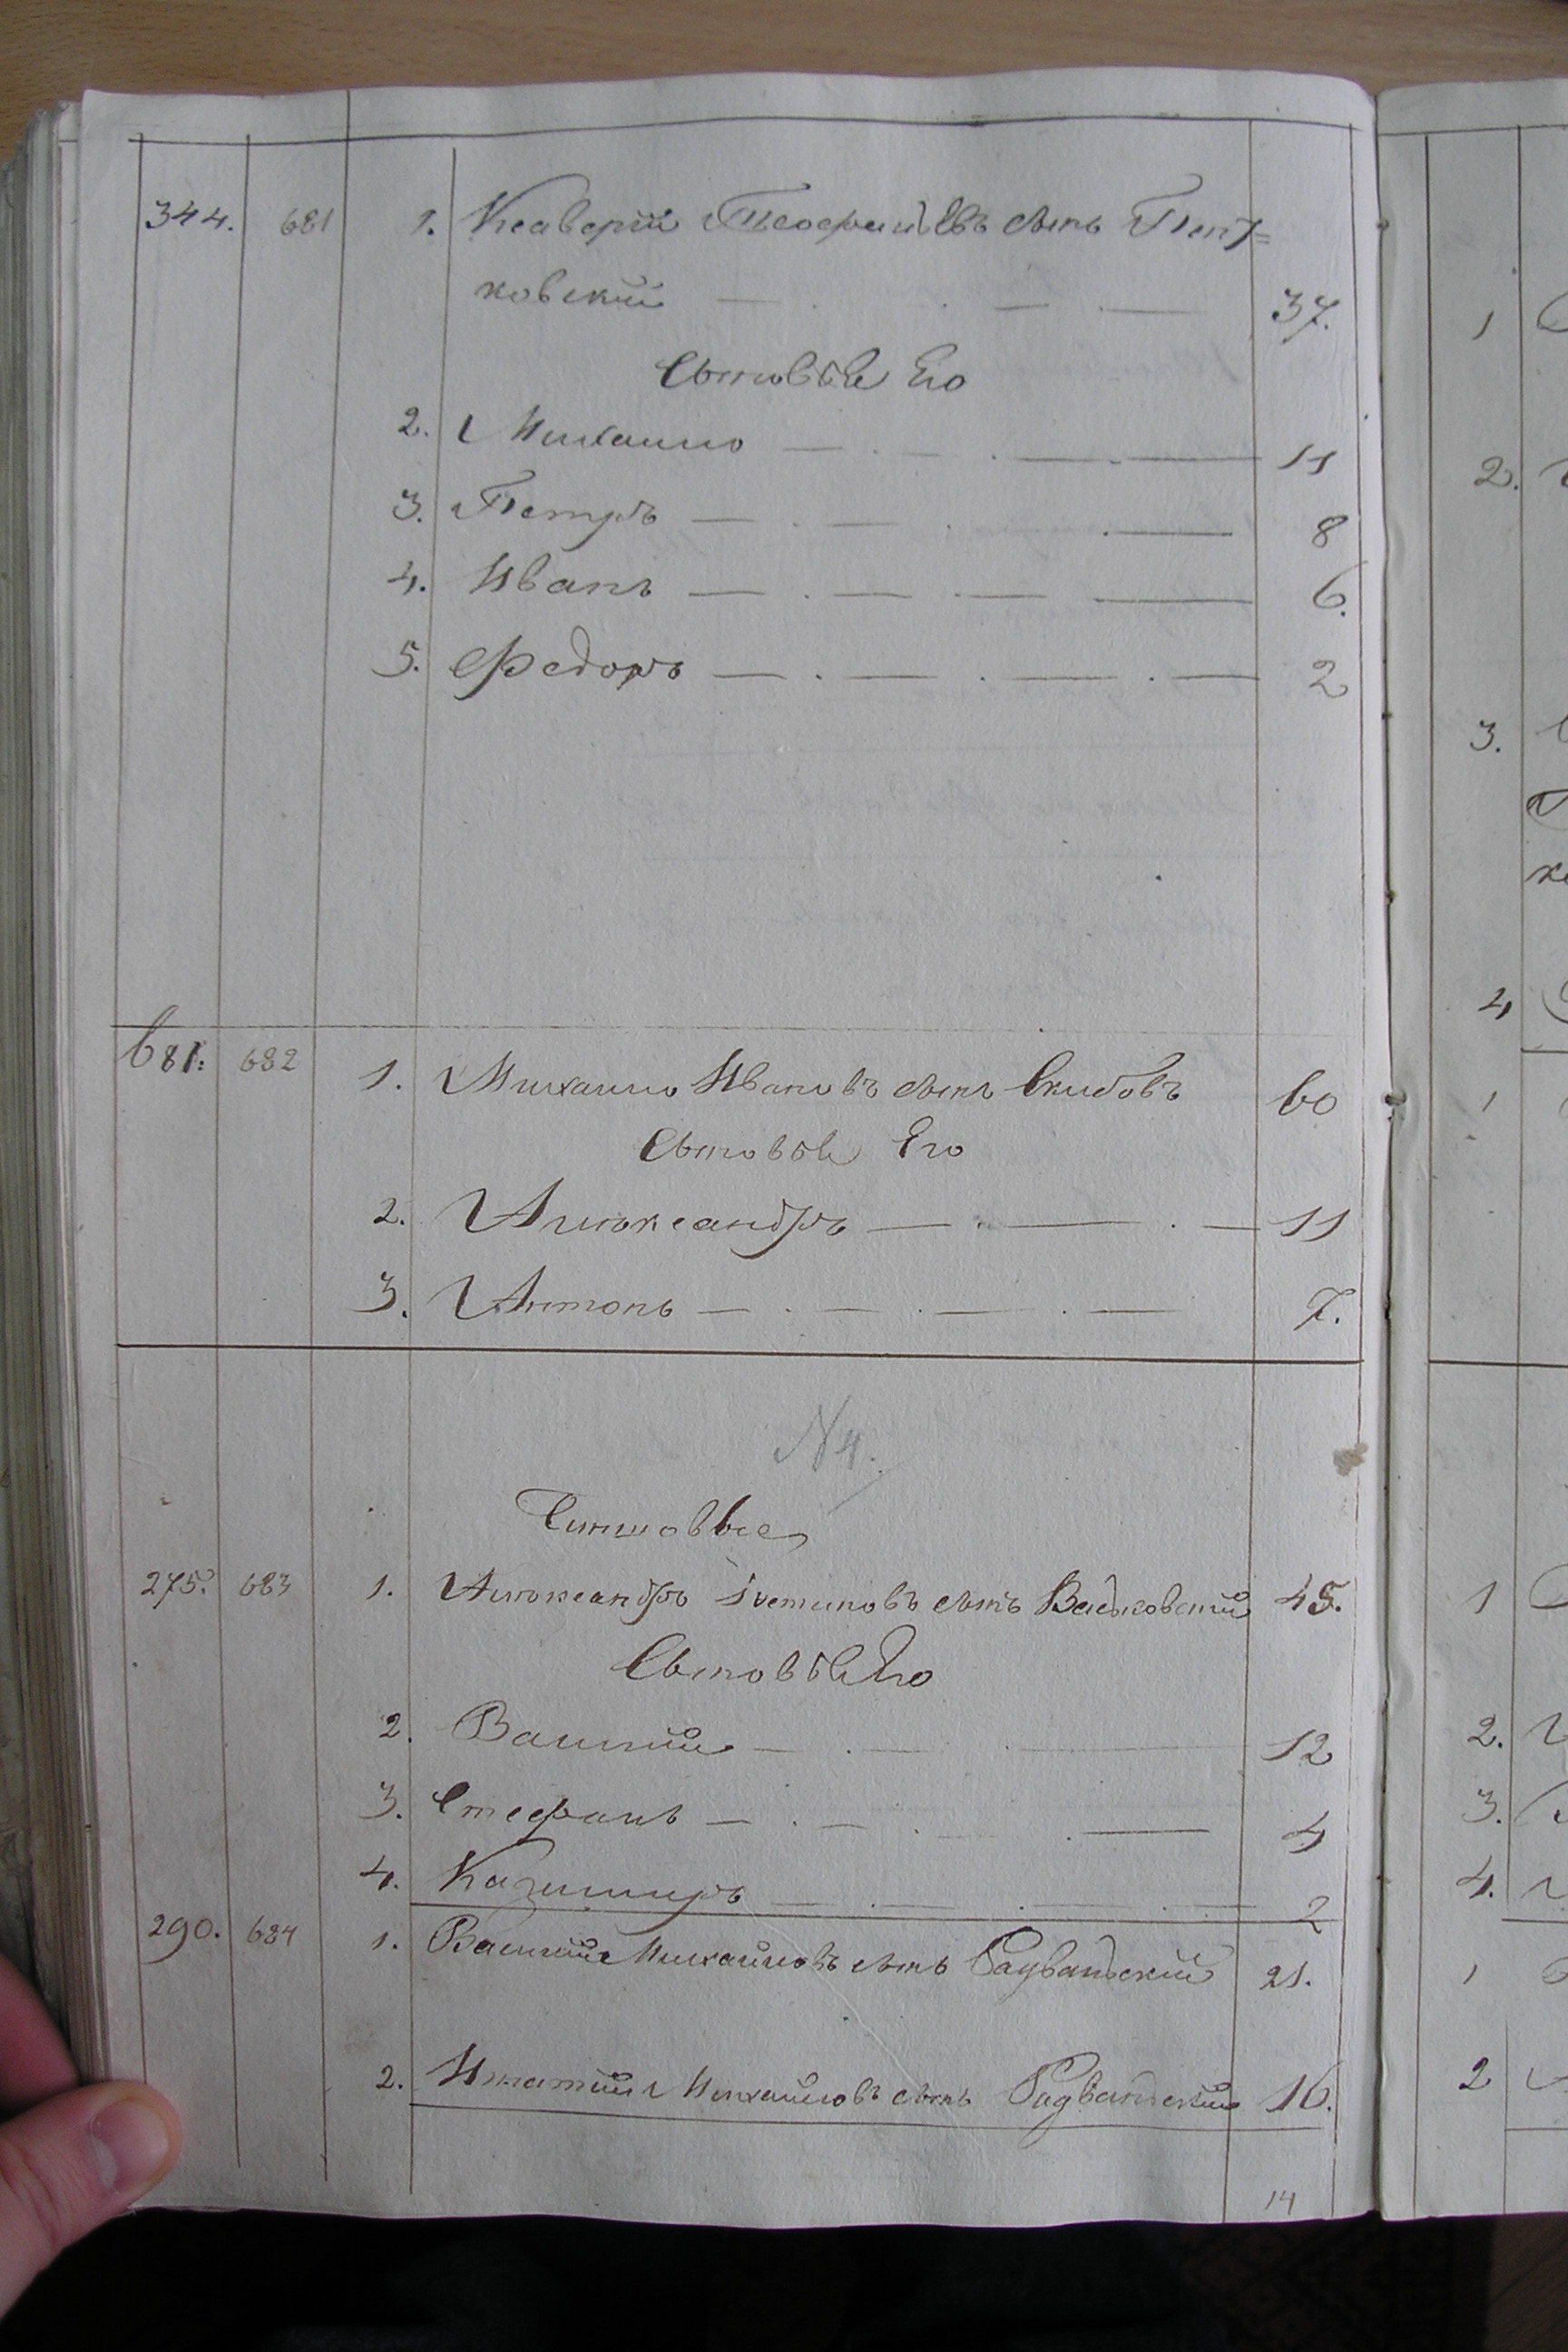 344. 681 1. Ксаверий Теофиловъ сынъ Пет=
ковский — . . — . — 37.
Сыновья Его
2. Михайло — . — . — . — 11
3. Петръ — . — . . — 8
4. Иванъ — . — . — — 6.
5. Федоръ — . — . — . — 2
681. 682 1. Михайло Ивановъ сынъ Скибовъ 60
Сыновья Его
2. Александръ — . — . — 11
3. Антонъ — . — . — . — 7.
N 4.
Чиншовые
275. 683 1. Александръ Іустиновъ сынъ 45.
Сыновья Его
2. Василий — . — . — 12
3. Стефанъ — . — . . — 4
4. Казимиръ — . — . — . — 2
290. 684 1. Василий Михайловъ сынъ Радванский 21.
2. Игнатий Михайловъ сынъ Радванский 16.
14
1
2.
3.
ко
4
1
1
2.
3.
4.
1
2